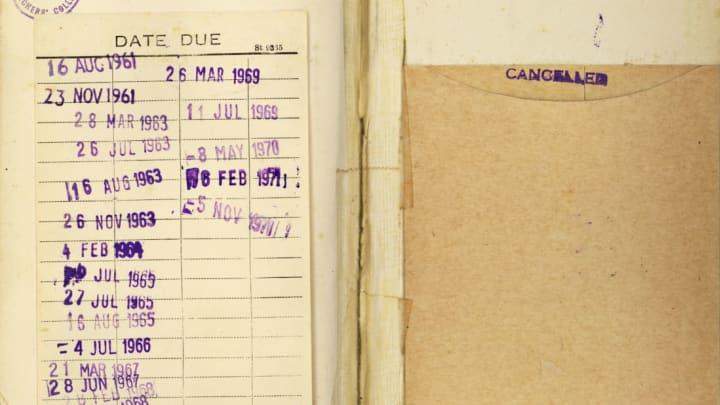 CKERS' COLL
DATE DUE
St 9335
16 AUG 1961
23 NOV 1961
28 MAR 1963
26 JUL 1963
16 AUG 1963
26 NOV 1963
4 FEB 1964
JUL 1965
27 JUL 1965
16 AUG 1965
= 4 JUL 1966
21 MAR 1967
28 JUN 1967
FEB 1968
1968
26 MAR 1969
11 JUL 1969
-8 MAY 1970
FEB 1971
-5 NOV 1971
CANCELLED